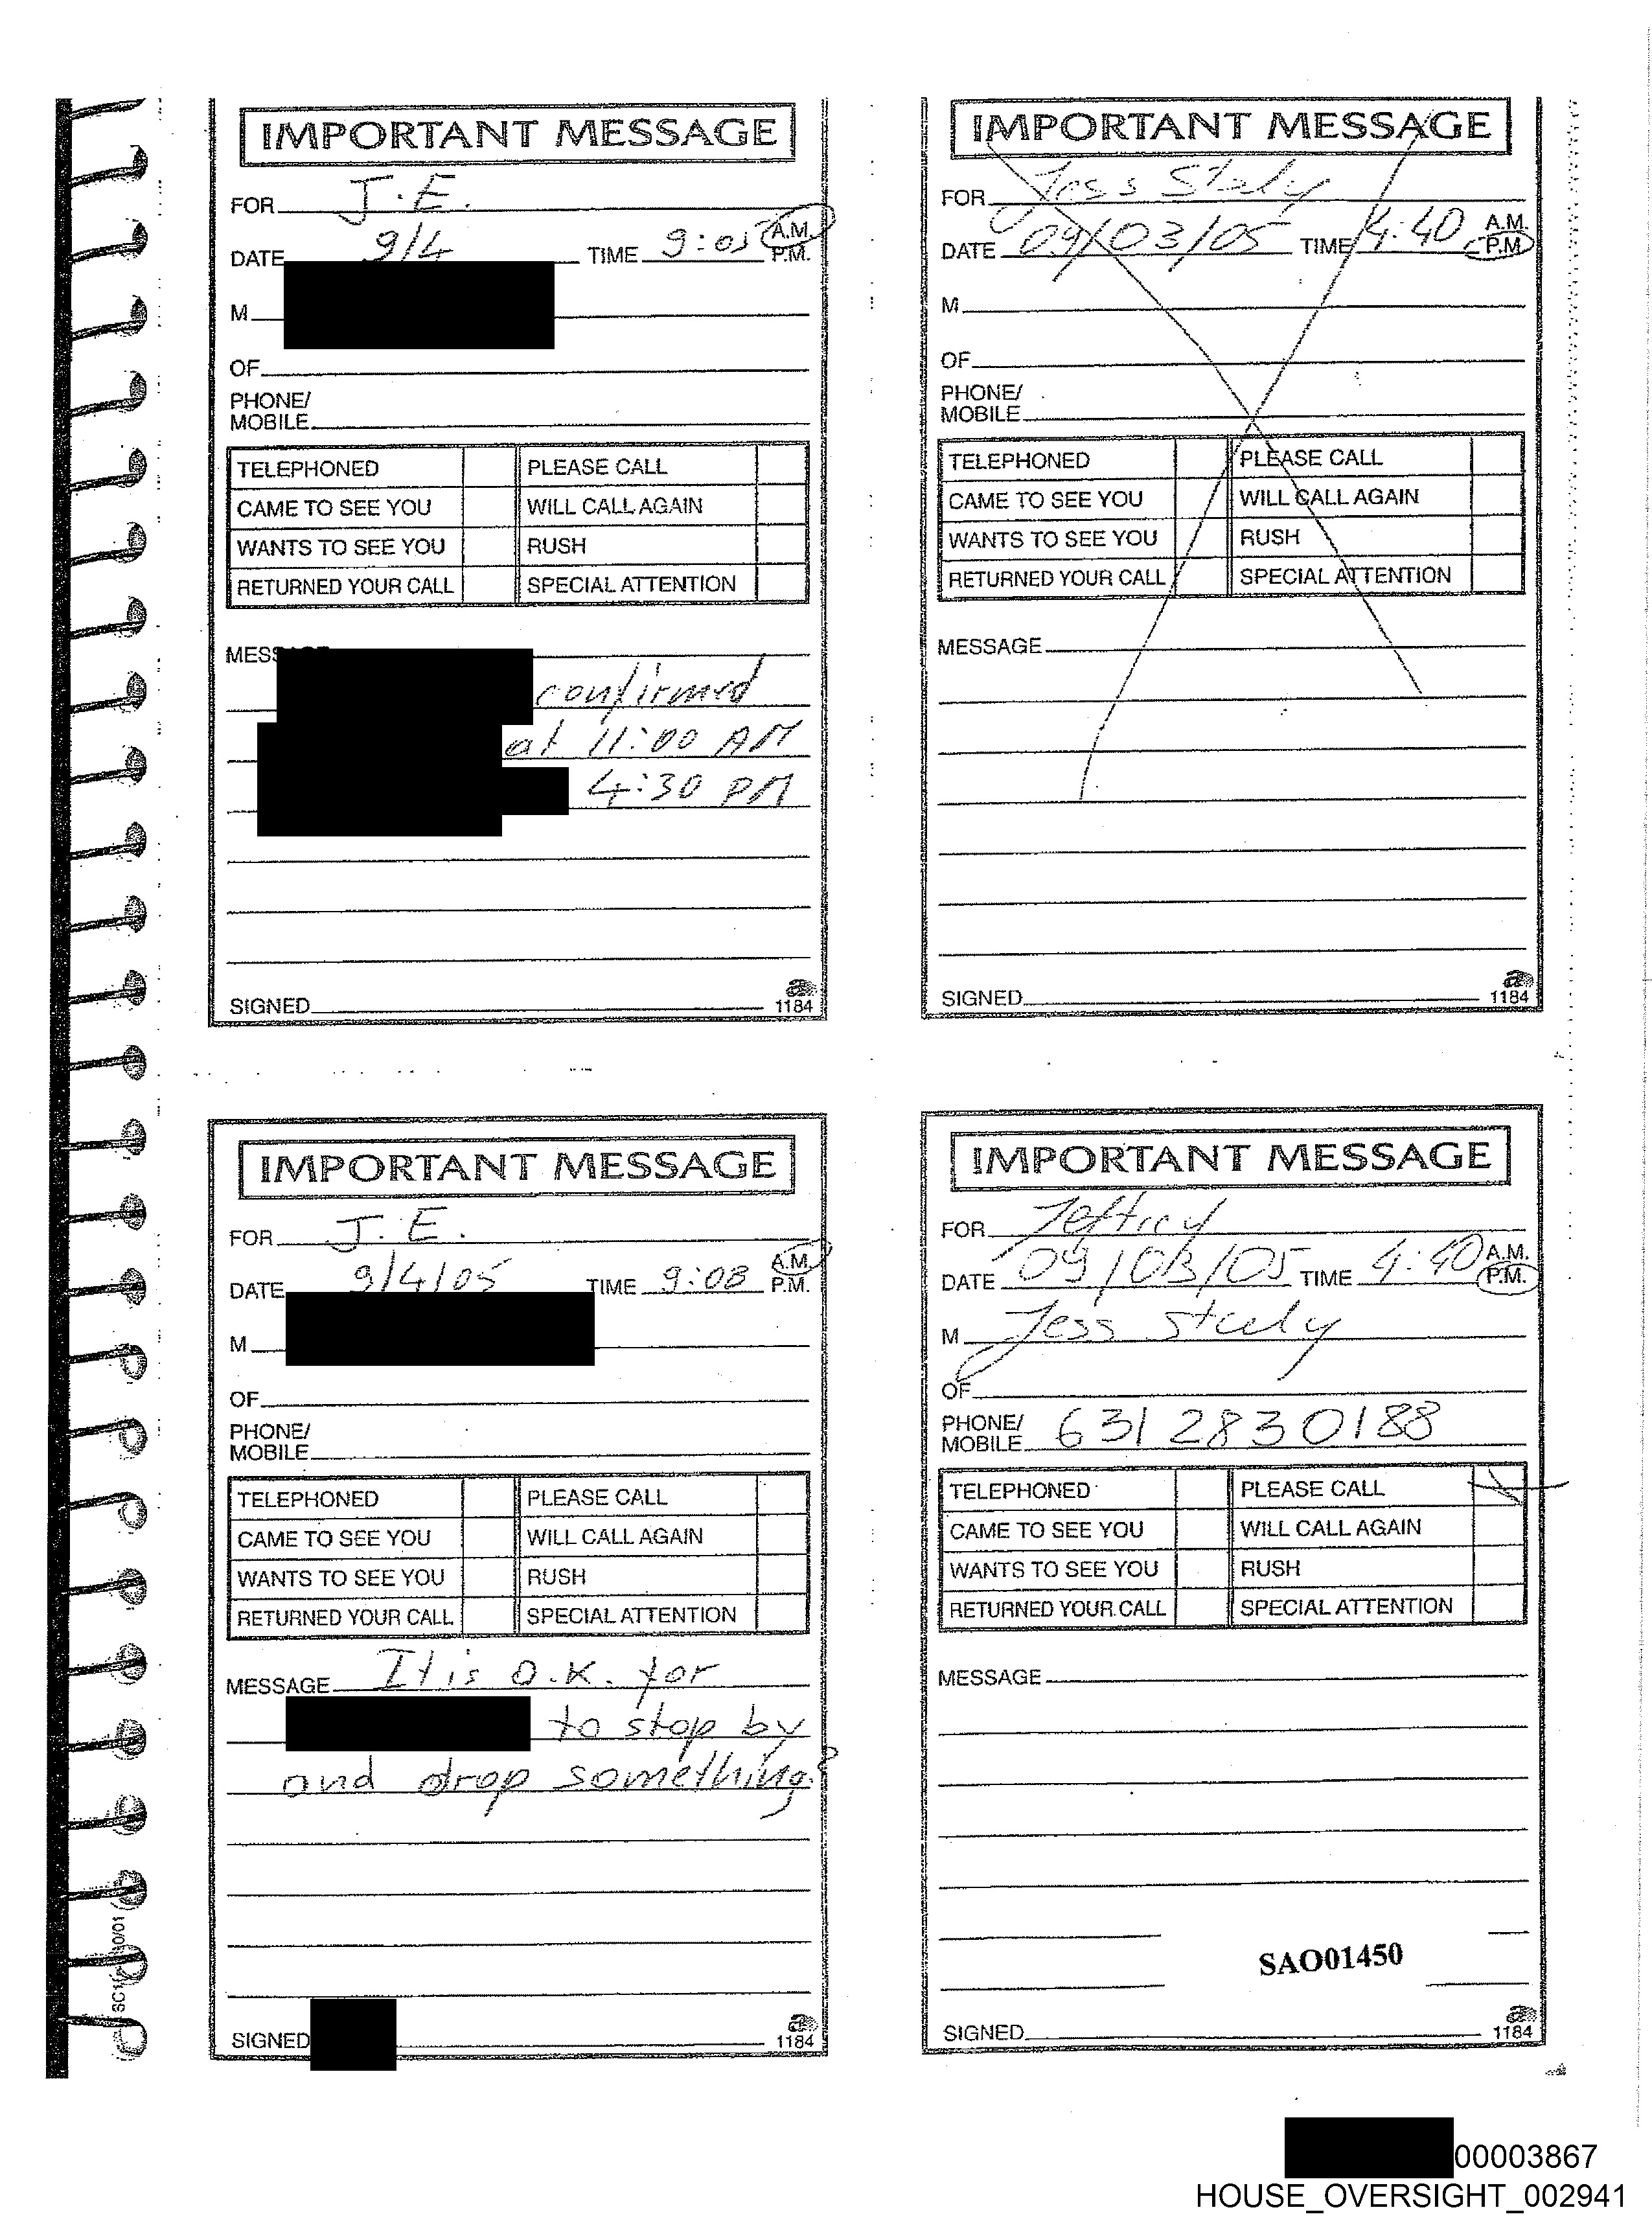 IMPORTANT MESSAGE
FOR J.E.
DATE 9/4 TIME 9:05 A.M.
P.M.
M
OF
PHONE/
MOBILE
TELEPHONED PLEASE CALL
CAME TO SEE YOU WILL CALL AGAIN
WANTS TO SEE YOU RUSH
RETURNED YOUR CALL SPECIAL ATTENTION
MESSAGE
confirmed
at 11:00 AM
4:30 PM
SIGNED
1184
IMPORTANT MESSAGE
FOR Jess Staly
DATE 09/03/05 TIME 4:40 A.M.
P.M.
M
OF
PHONE/
MOBILE
TELEPHONED PLEASE CALL
CAME TO SEE YOU WILL CALL AGAIN
WANTS TO SEE YOU RUSH
RETURNED YOUR CALL SPECIAL ATTENTION
MESSAGE
SIGNED
1184
IMPORTANT MESSAGE
FOR J.E.
DATE 9/4/05 TIME 9:08 A.M.
P.M.
M
OF
PHONE/
MOBILE
TELEPHONED PLEASE CALL
CAME TO SEE YOU WILL CALL AGAIN
WANTS TO SEE YOU RUSH
RETURNED YOUR CALL SPECIAL ATTENTION
MESSAGE It is O.K. for
to stop by
and drop something?
SIGNED
1184
IMPORTANT MESSAGE
FOR Jeffrey
DATE 09/03/05 TIME 4:40 A.M.
P.M.
M Jess Staely
OF
PHONE/
MOBILE 631 283 0188
TELEPHONED PLEASE CALL
CAME TO SEE YOU WILL CALL AGAIN
WANTS TO SEE YOU RUSH
RETURNED YOUR CALL SPECIAL ATTENTION
MESSAGE
SAO01450
SIGNED
1184
00003867
HOUSE_OVERSIGHT_002941